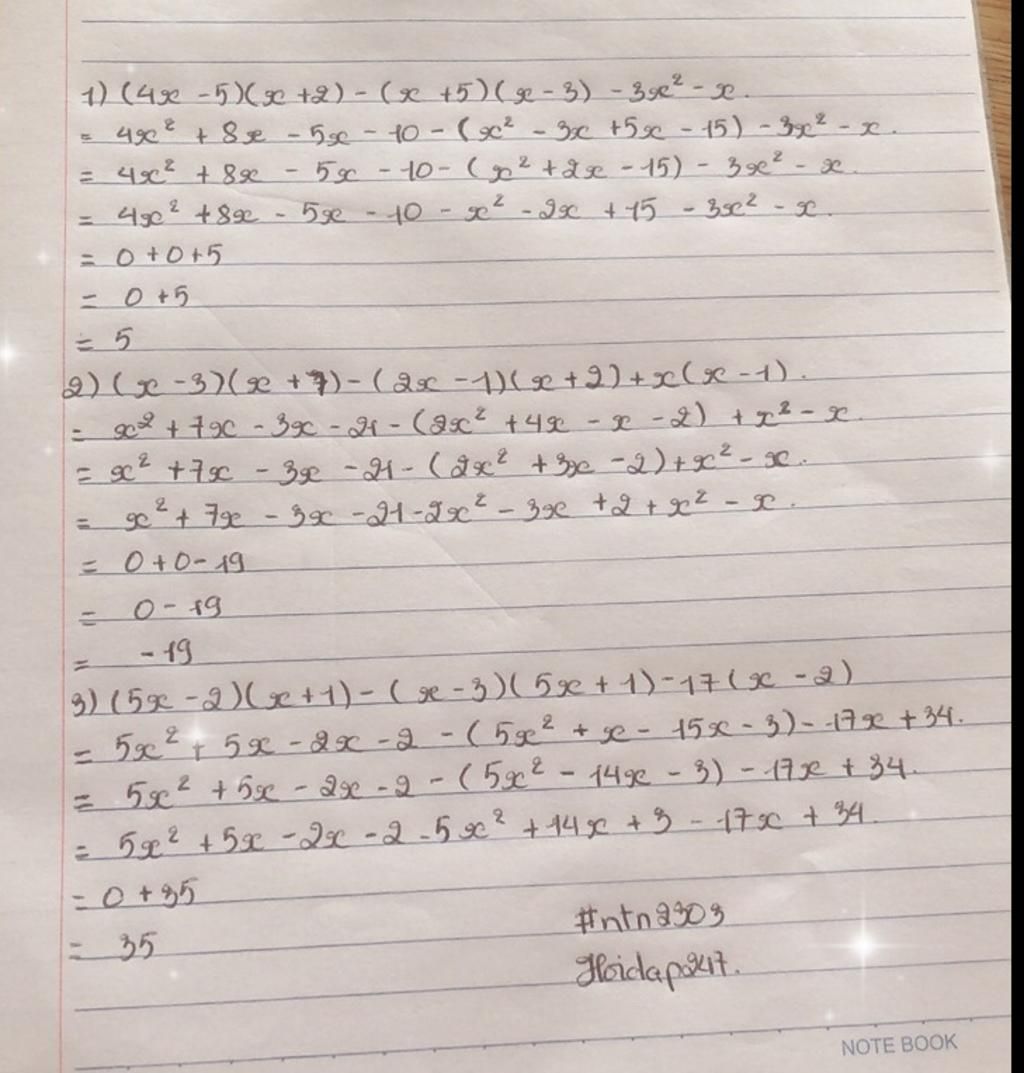 1) (4x - 5)(x + 2) - (x + 5)(x - 3) - 3x² - x.
= 4x² + 8x - 5x - 10 - (x² - 3x + 5x - 15) - 3x² - x.
= 4x² + 8x - 5x - 10 - (x² + 2x - 15) - 3x² - x.
= 4x² + 8x - 5x - 10 - x² - 2x + 15 - 3x² - x.
= 0 + 0 + 5
= 0 + 5
= 5
2) (x - 3)(x + 7) - (2x - 1)(x + 2) + x(x - 1).
= x² + 7x - 3x - 21 - (2x² + 4x - x - 2) + x² - x.
= x² + 7x - 3x - 21 - (2x² + 3x - 2) + x² - x.
= x² + 7x - 3x - 21 - 2x² - 3x + 2 + x² - x.
= 0 + 0 - 19
= 0 - 19
= - 19
3) (5x - 2)(x + 1) - (x - 3)(5x + 1) - 17(x - 2)
= 5x² + 5x - 2x - 2 - (5x² + x - 15x - 3) - 17x + 34.
= 5x² + 5x - 2x - 2 - (5x² - 14x - 3) - 17x + 34.
= 5x² + 5x - 2x - 2 - 5x² + 14x + 3 - 17x + 34.
= 0 + 35
= 35
#ntn2303
Hoidap247.
NOTE BOOK